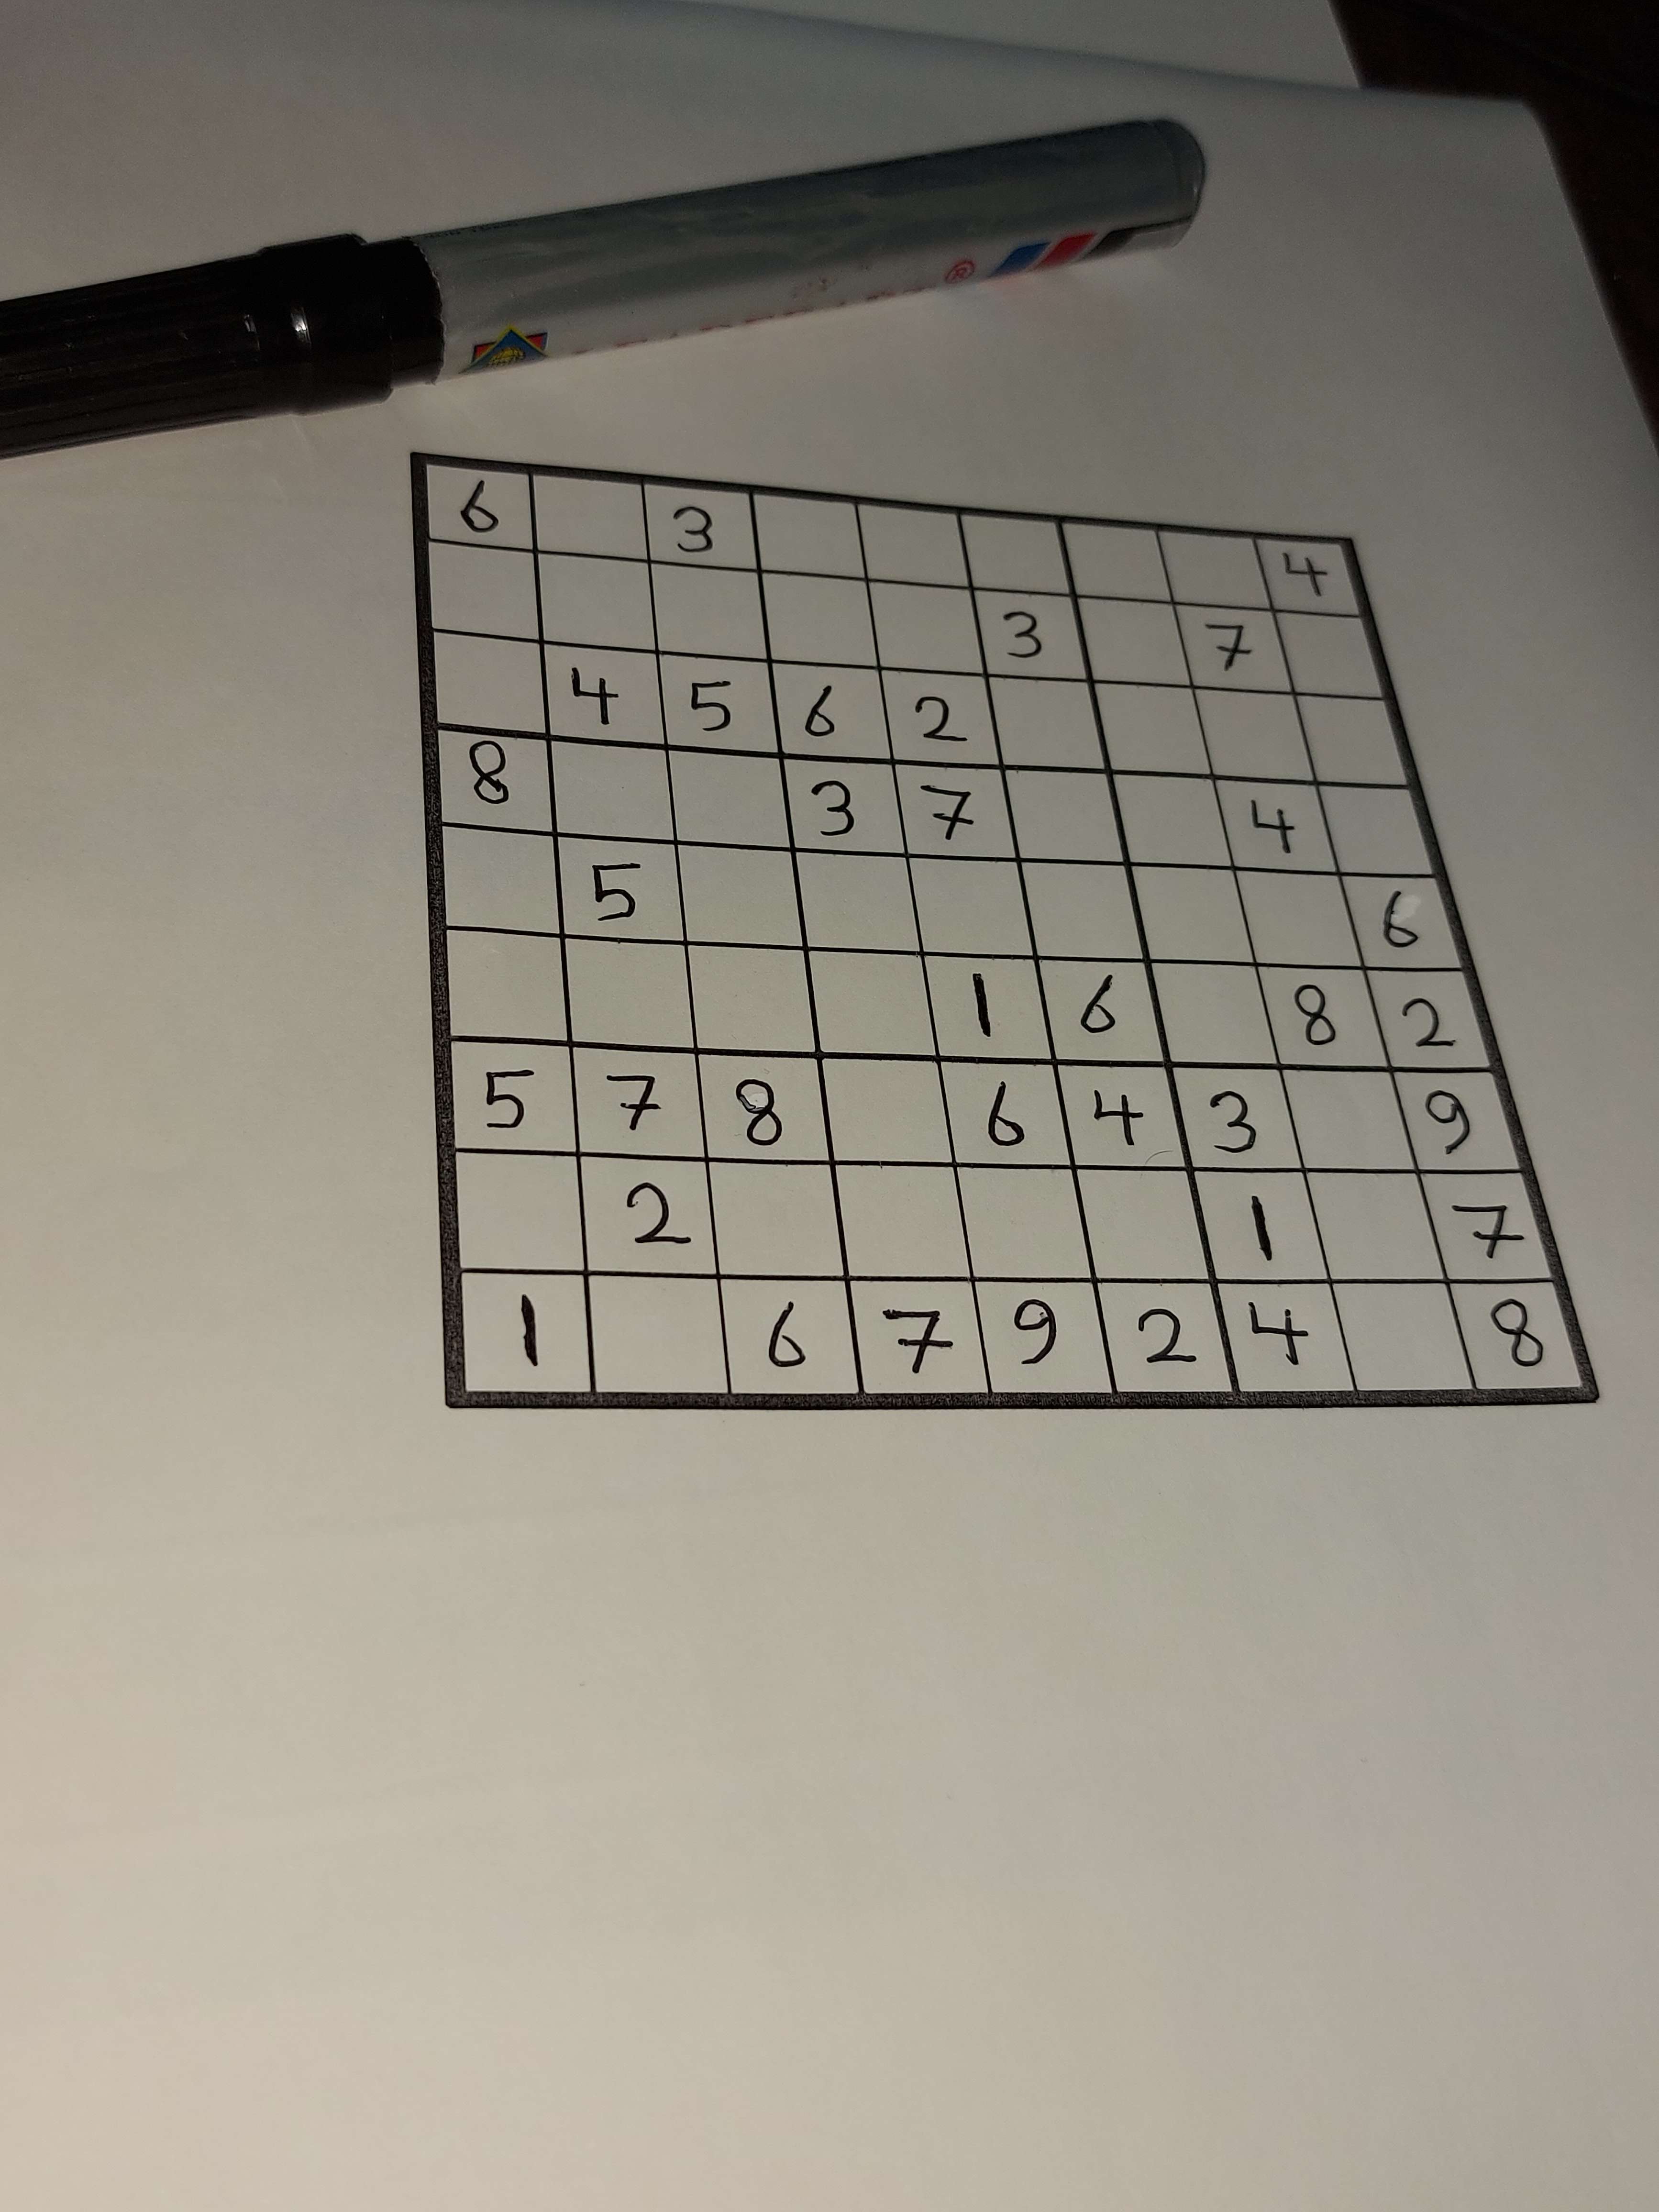 ®
6 3 4
3 7
4 5 6 2
8 3 7 4
5 6
1 6 8 2
5 7 8 6 4 3 9
2 1 7
1 6 7 9 2 4 8